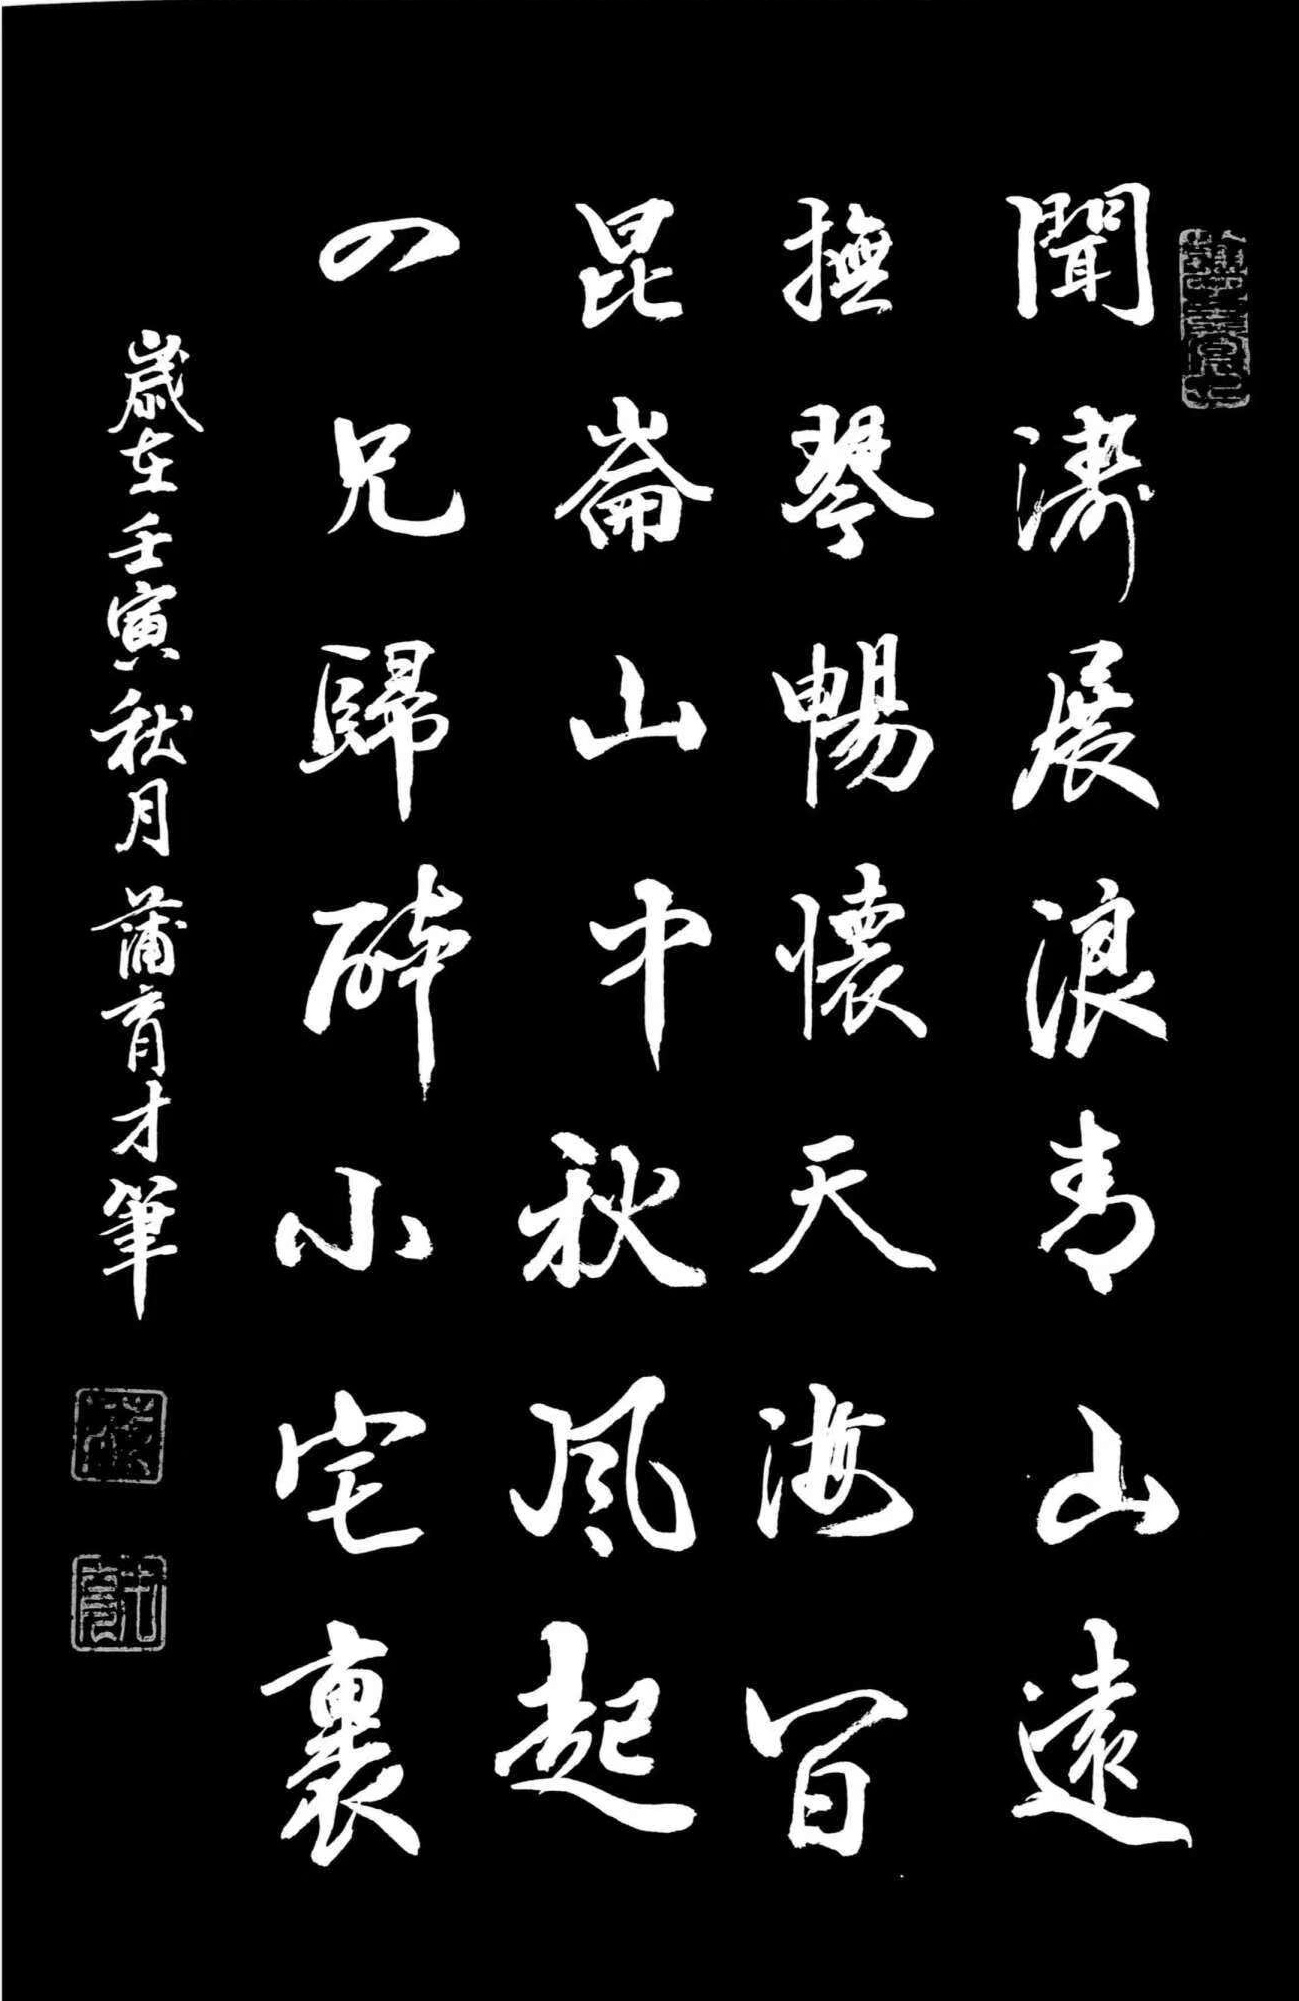 聞濤展浪青山遠
撫琴暢懷天海闊
昆崙山中秋風起
四兄歸碎小宅裏
歲在壬寅秋月蒲育才筆